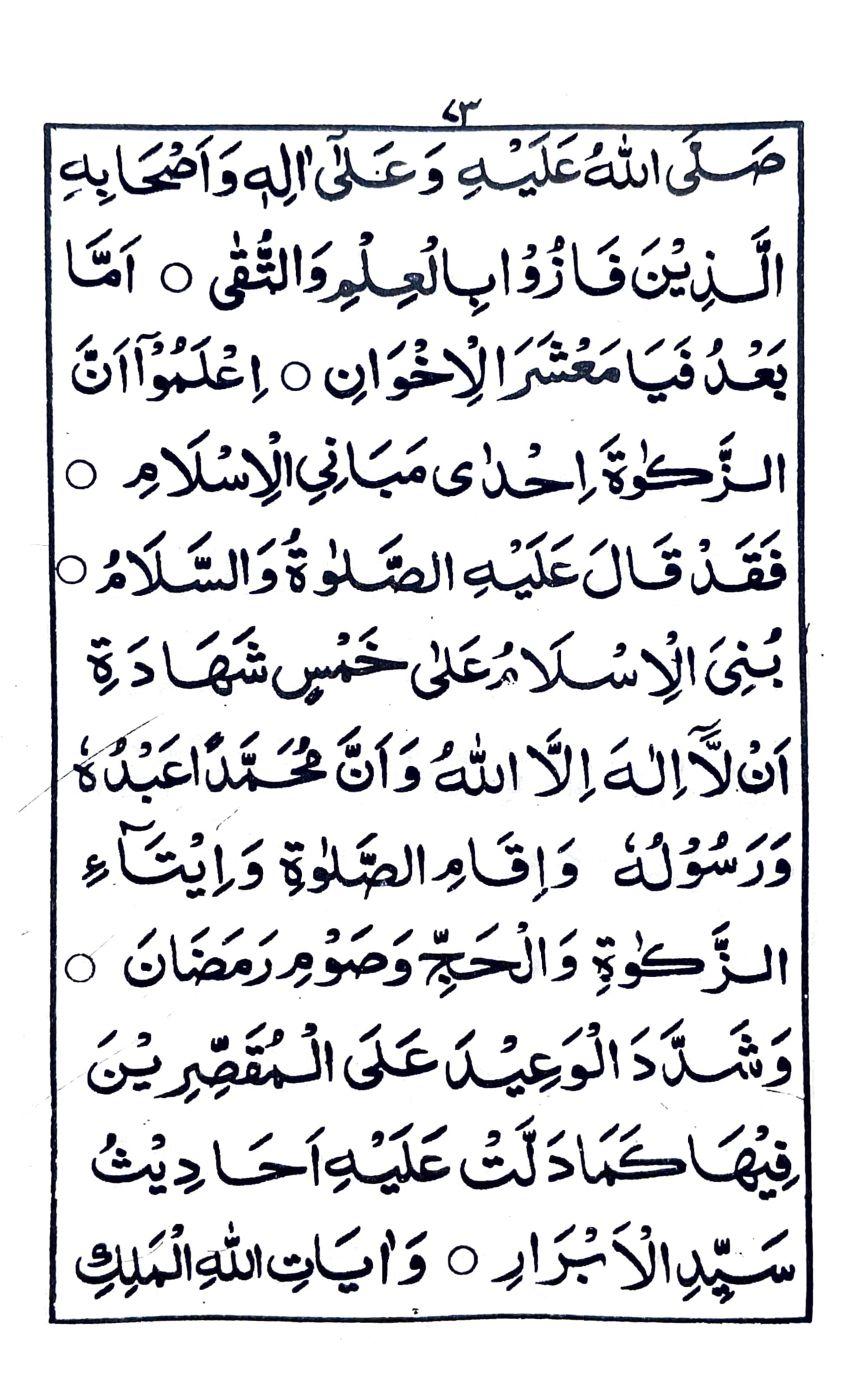 ۷۳
صَلَّى اللّٰهُ عَلَيْهِ وَعَلٰٓى اٰلِهٖ وَاَصْحَابِهِ
الَّذِيْنَ فَازُوْا بِالْعِلْمِ وَالتُّقٰى ○ اَمَّا
بَعْدُ فَيَا مَعْشَرَ الْاِخْوَانِ ○ اِعْلَمُوْٓا اَنَّ
الزَّكٰوةَ اِحْدٰى مَبَانِي الْاِسْلَامِ ○
فَقَدْ قَالَ عَلَيْهِ الصَّلٰوةُ وَالسَّلَامُ ○
بُنِيَ الْاِسْلَامُ عَلٰى خَمْسٍ شَهَادَةِ
اَنْ لَّآ اِلٰهَ اِلَّا اللّٰهُ وَاَنَّ مُحَمَّدًا عَبْدُهٗ
وَرَسُوْلُهٗ وَاِقَامِ الصَّلٰوةِ وَاِيْتَآءِ
الزَّكٰوةِ وَالْحَجِّ وَصَوْمِ رَمَضَانَ ○
وَشَدَّدَ الْوَعِيْدَ عَلَى الْمُقَصِّرِيْنَ
فِيْهَا كَمَا دَلَّتْ عَلَيْهِ اَحَادِيْثُ
سَيِّدِ الْاَبْرَارِ ○ وَاٰيَاتِ اللّٰهِ الْمَلِكِ